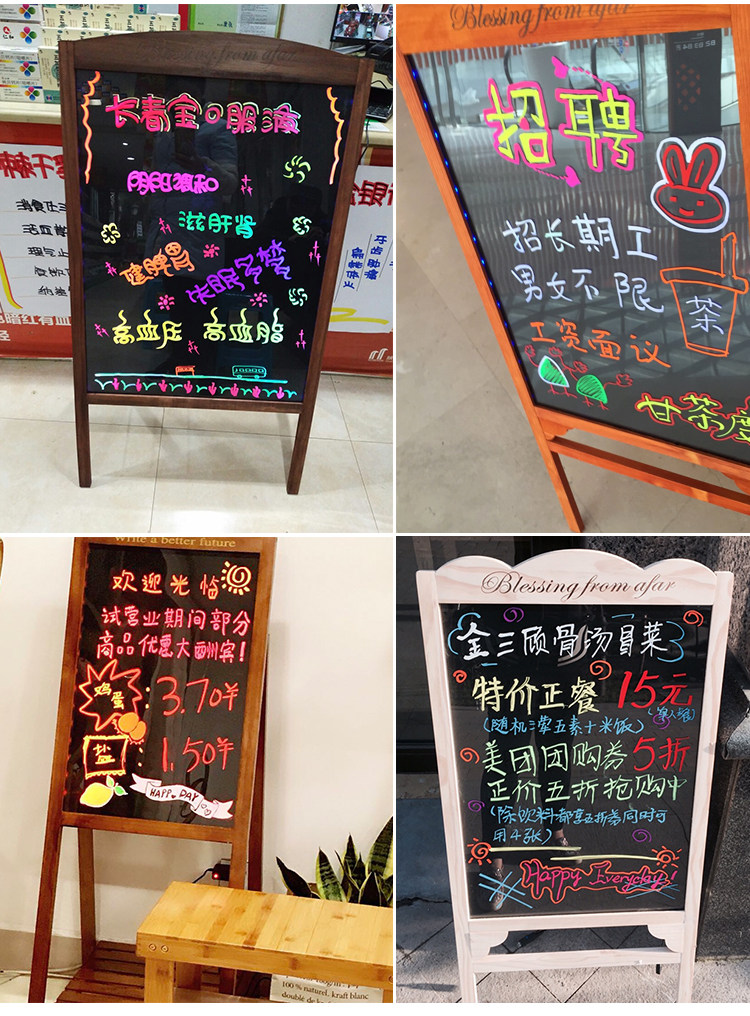 Blessing from afar
长春金口服液
阴阳调和
滋肝肾
健脾胃
失眠多梦
高血压 高血脂
Blessing from afar
招聘
招长期工
男女不限
工资面议
茶
甘茶度
write a better future
欢迎光临
试营业期间部分
商品优惠大酬宾!
鸡蛋 3.70羊
盐 1.50羊
HAPPY DAY
100% naturel. kraft blanc
Blessing from afar
金三顾骨汤冒菜
特价正餐 15元
美团团购券5折
正价五折抢购中
(除饮料都享五折券同时可
用4张)
Happy Everyday!